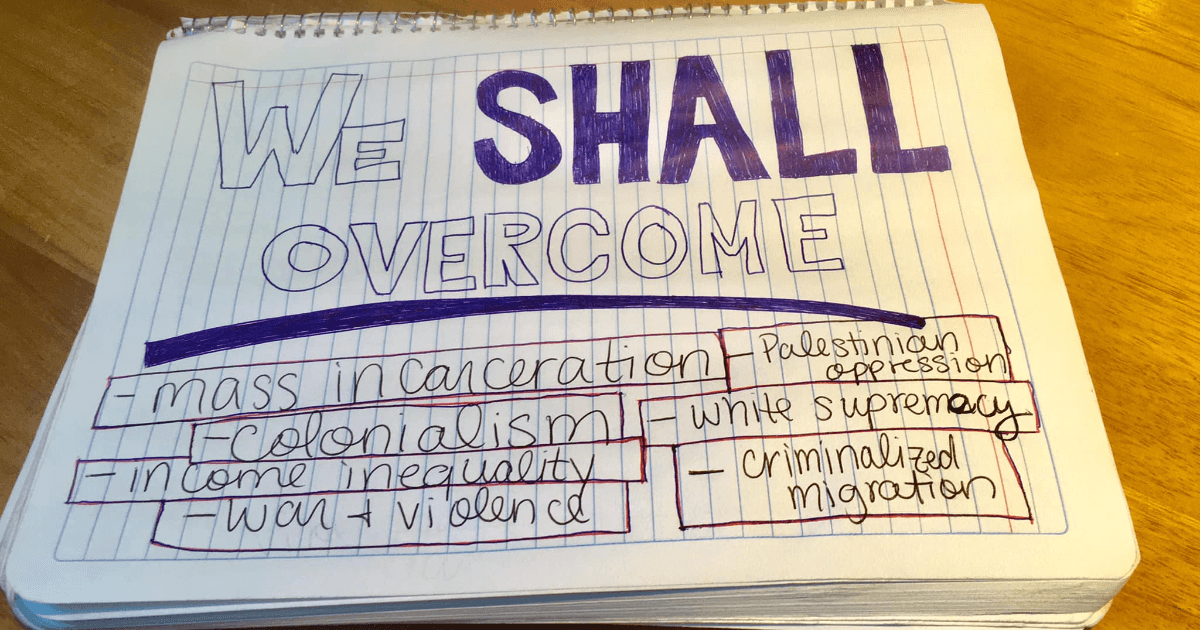 WE SHALL
OVERCOME
- mass incarceration
- colonialism
- income inequality
- war + violence
- Palestinian
oppression
- white supremacy
- criminalized
migration